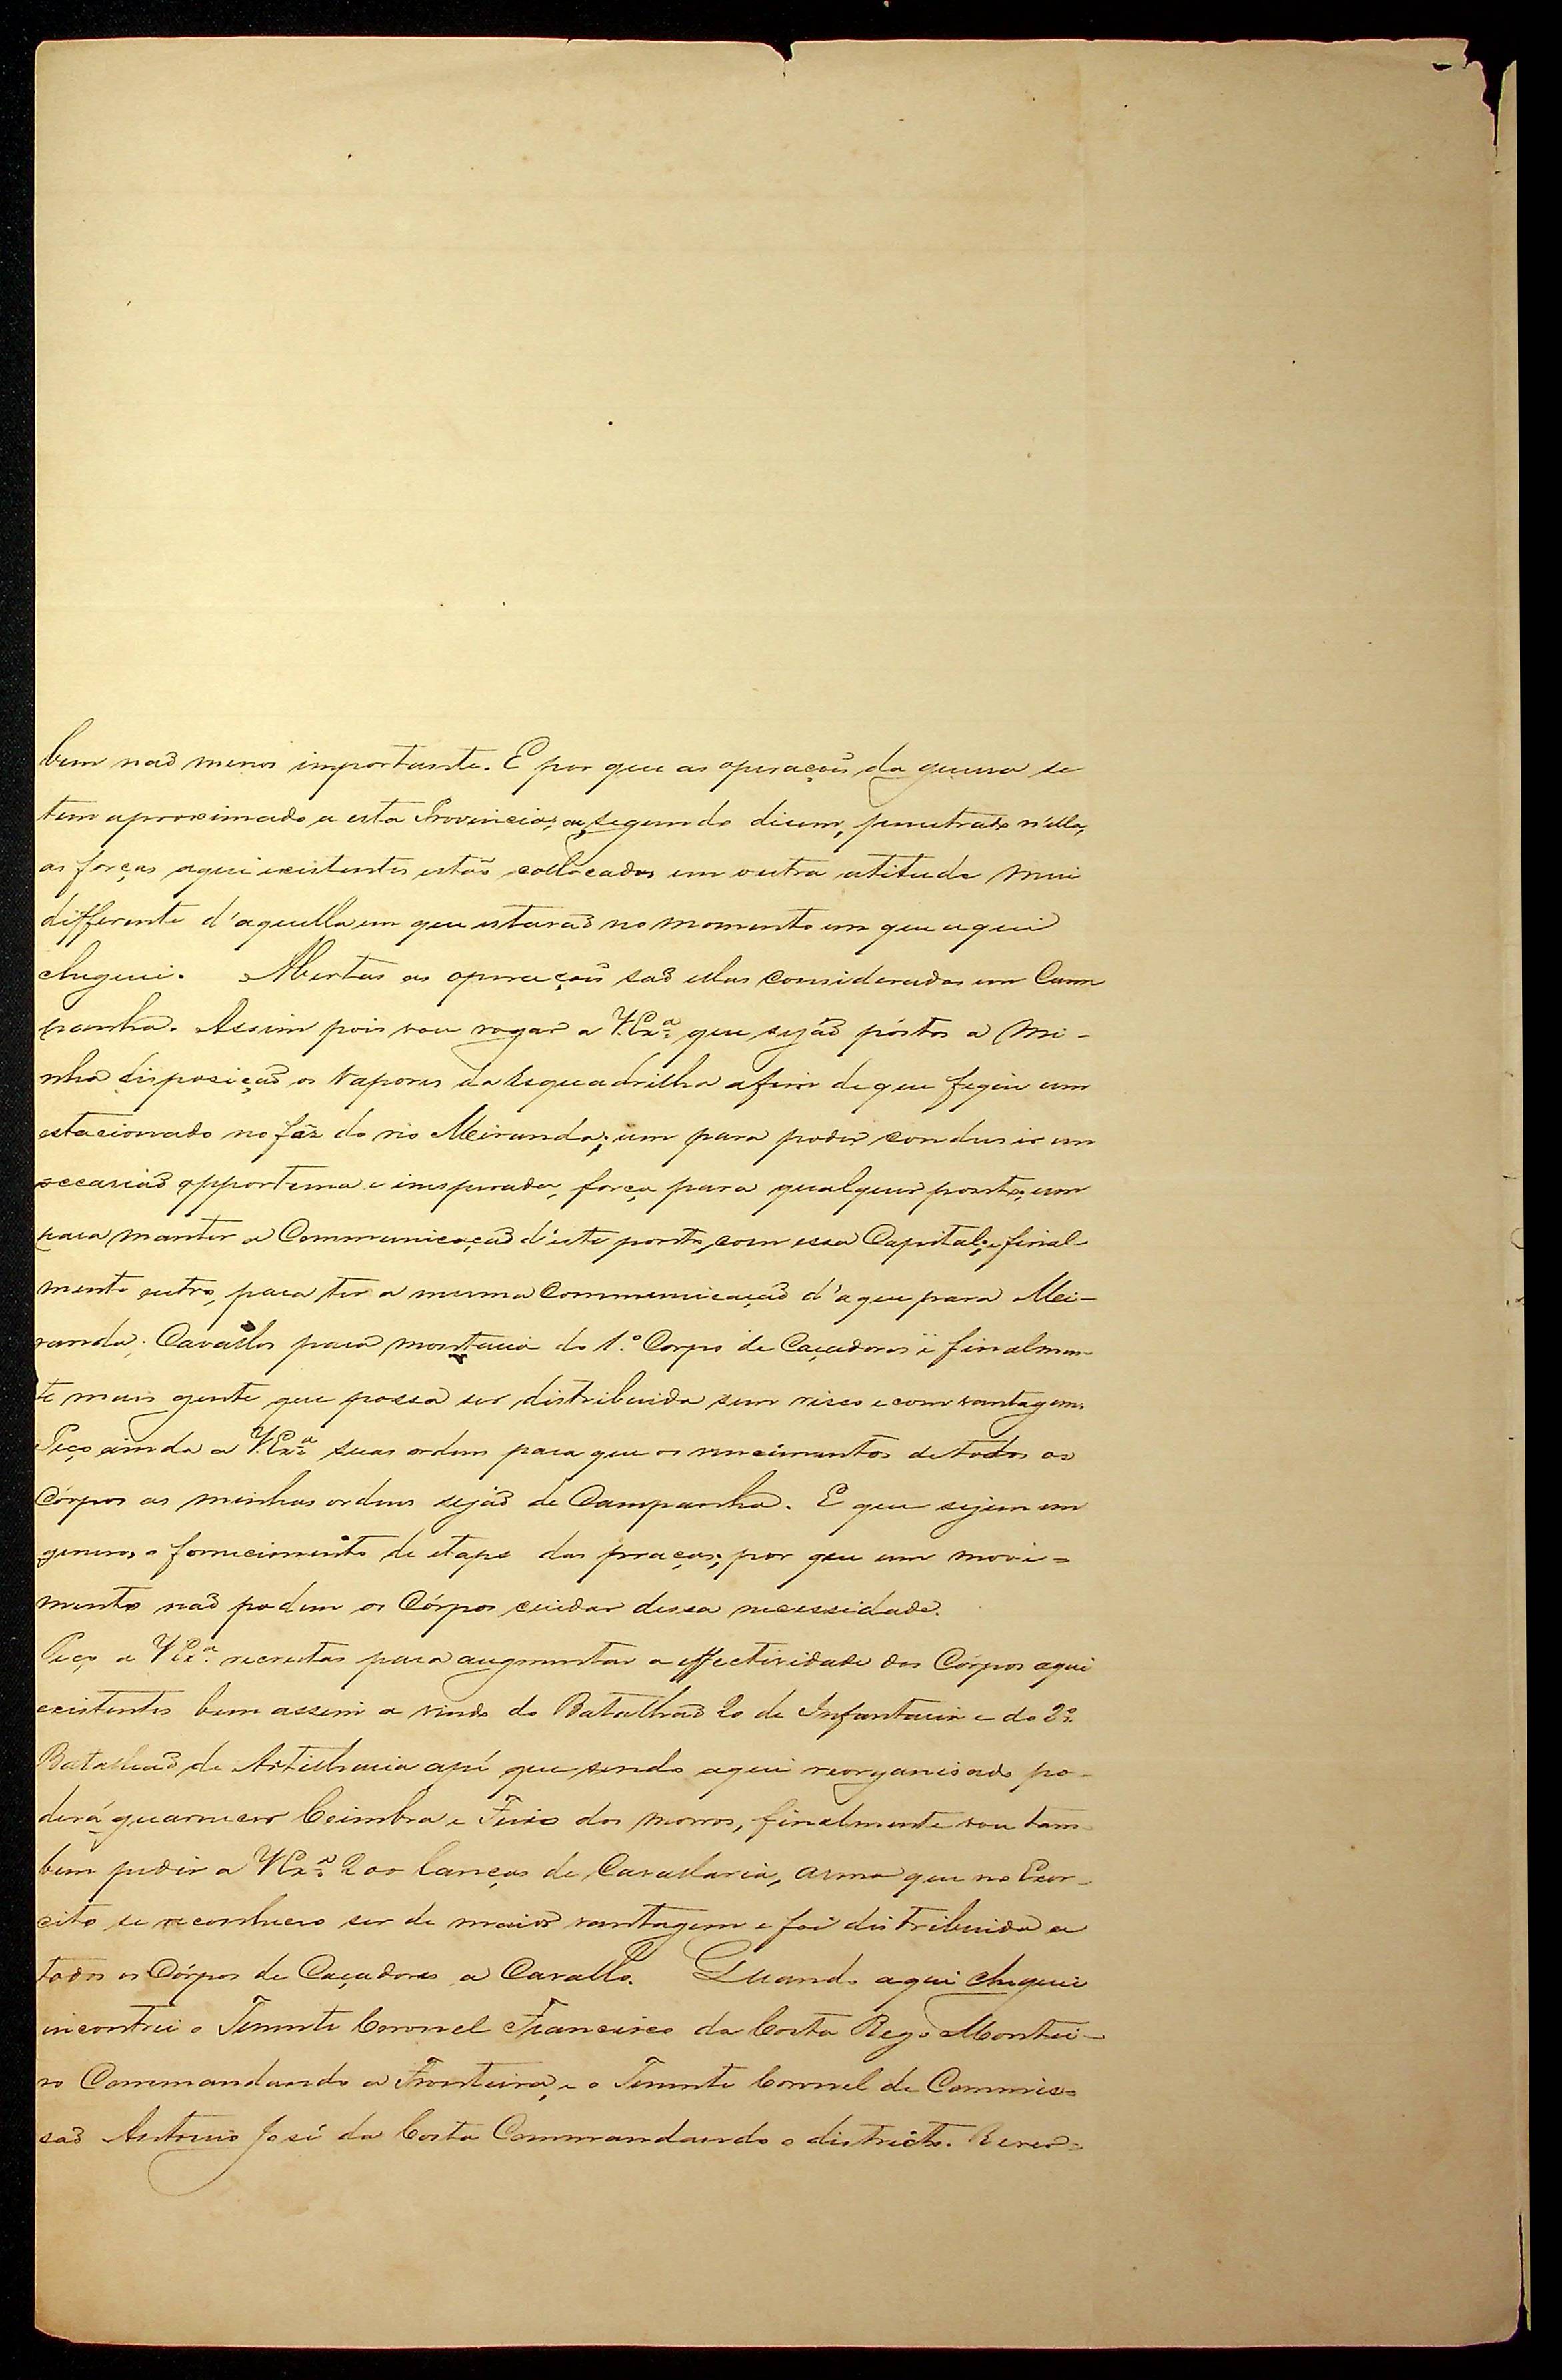 bem naõ menos importante. E por que as operaçoẽs da guerra se
tem aproximado a esta Provincia, ou, segundo disem, penetrado n'ella,
as forças aqui existentes estaõ collocadas em outra atitude mui
differente d'aquella em que estavaõ no momento em que aqui
cheguei. Abertas as operaçoẽs saõ ellas consideradas em Cam
panha. Assim pois vou rogar a V.Exª que sejaõ póstos a mi-
nha disposiçaõ os vapores da Esquadrilha afim de que fique um
estacionado no fóz do rio Meiranda; um para poder condusir em
occasiaõ opportuna e inesperada, força para qualquer ponto; um
para manter a Communicaçaõ d'este ponto, com essa Capital; e final-
mente outro, para ter a mesma Communicaçaõ d'aqui para Mei-
randa. Cavallos para montaria do 1.º Corpo de Caçadores e finalmen-
te mais gente que possa ser distribuida sem risco e com vantagem.
Peço ainda a V.Exª suas ordens para que os vencimentos de todos os
Córpos as minhas ordens sejaõ de Campanha. E que sejam em
generos o fornecimento de etape das praças; por que em movi=
mento naõ podem os Córpos cuidar dessa necessidade.
Peço a V.Exª recrutas para augmentar a effectividade dos Córpos aqui
existentes bem assim a vinda do Batalhaõ 20 de Infantaria e do 2º
Batalhaõ de Artilharia apé que sendo aqui reorganisado po-
derá guarnecer Coimbra e Fuxo dos morros, finalmente vou tam-
bem pedir a V.Exª 200 lanças de Cavallaria, arma que no Exer-
cito se reconheceo ser de maior vantagem e foi distribuida a
todos os Córpos de Caçadores a Cavallo. Quando aqui cheguei
encontrei o Tenente Coronel Francisco da Costa Rego Montei-
ro Commandando a Fronteira, e o Tenente Coronel de Commis=
saõ Antonio José da Costa Commandando o districto.